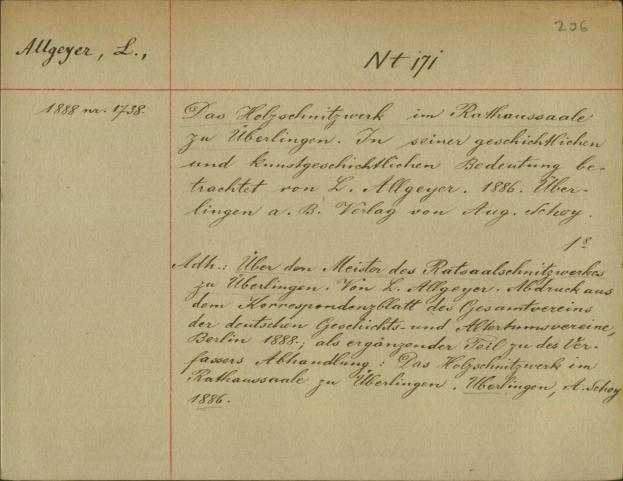 296
Allgeyer, L.,
Nt 171
1888 nr. 1738.
Das Holzschnitzwerk im Rathaussaale
zu Überlingen. In seiner geschichtlichen
und kunstgeschichtlichen Bedeutung be-
trachtet von L. Allgeyer. 1886. Über-
lingen a. B. Verlag von Aug. Schoy.
1º
Adh.: Über den Meister des Ratsaalschnitzwerkes
zu Überlingen. Von L. Allgeyer. Abdruck aus
dem Korrespondenzblatt des Gesamtvereins
der deutschen Geschichts- und Altertumsvereine,
Berlin 1888.; als ergänzender Teil zu des Ver-
fassers Abhandlung: Das Holzschnitzwerk im
Rathaussaale zu Überlingen. Überlingen, A. Schoy
1886.